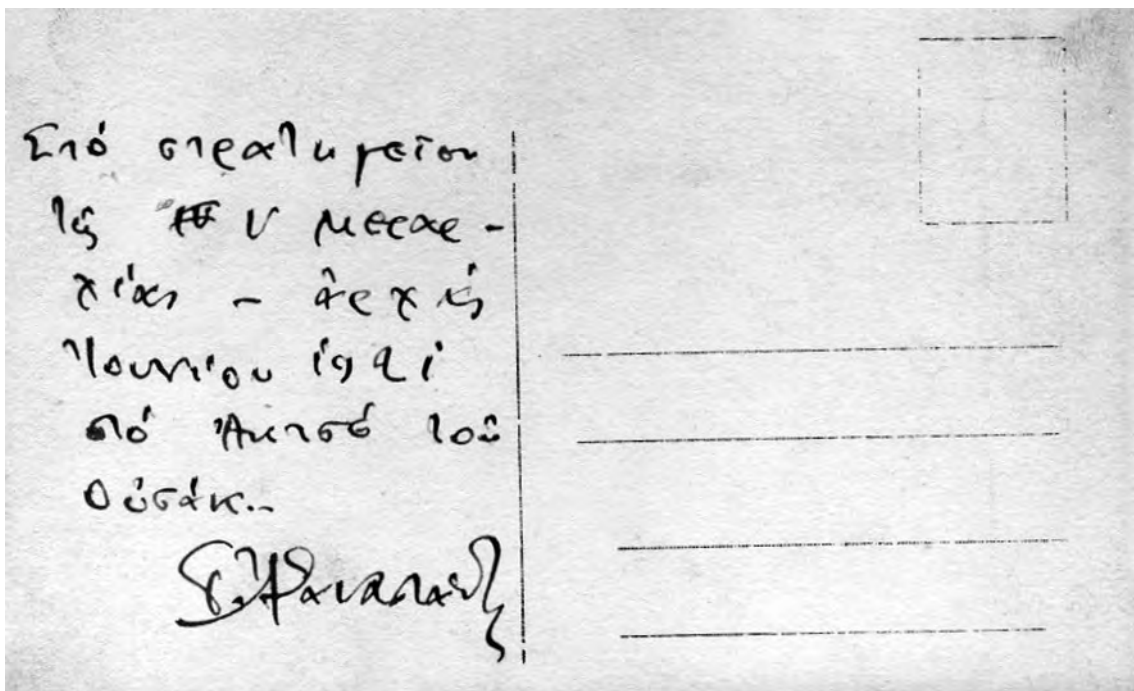 Στό στρατηγεῖον
τῆς V μεραρ-
χίας – ἀρχής
Ἰουνίου 1921
στό τοῦ
Οὐσάκ..